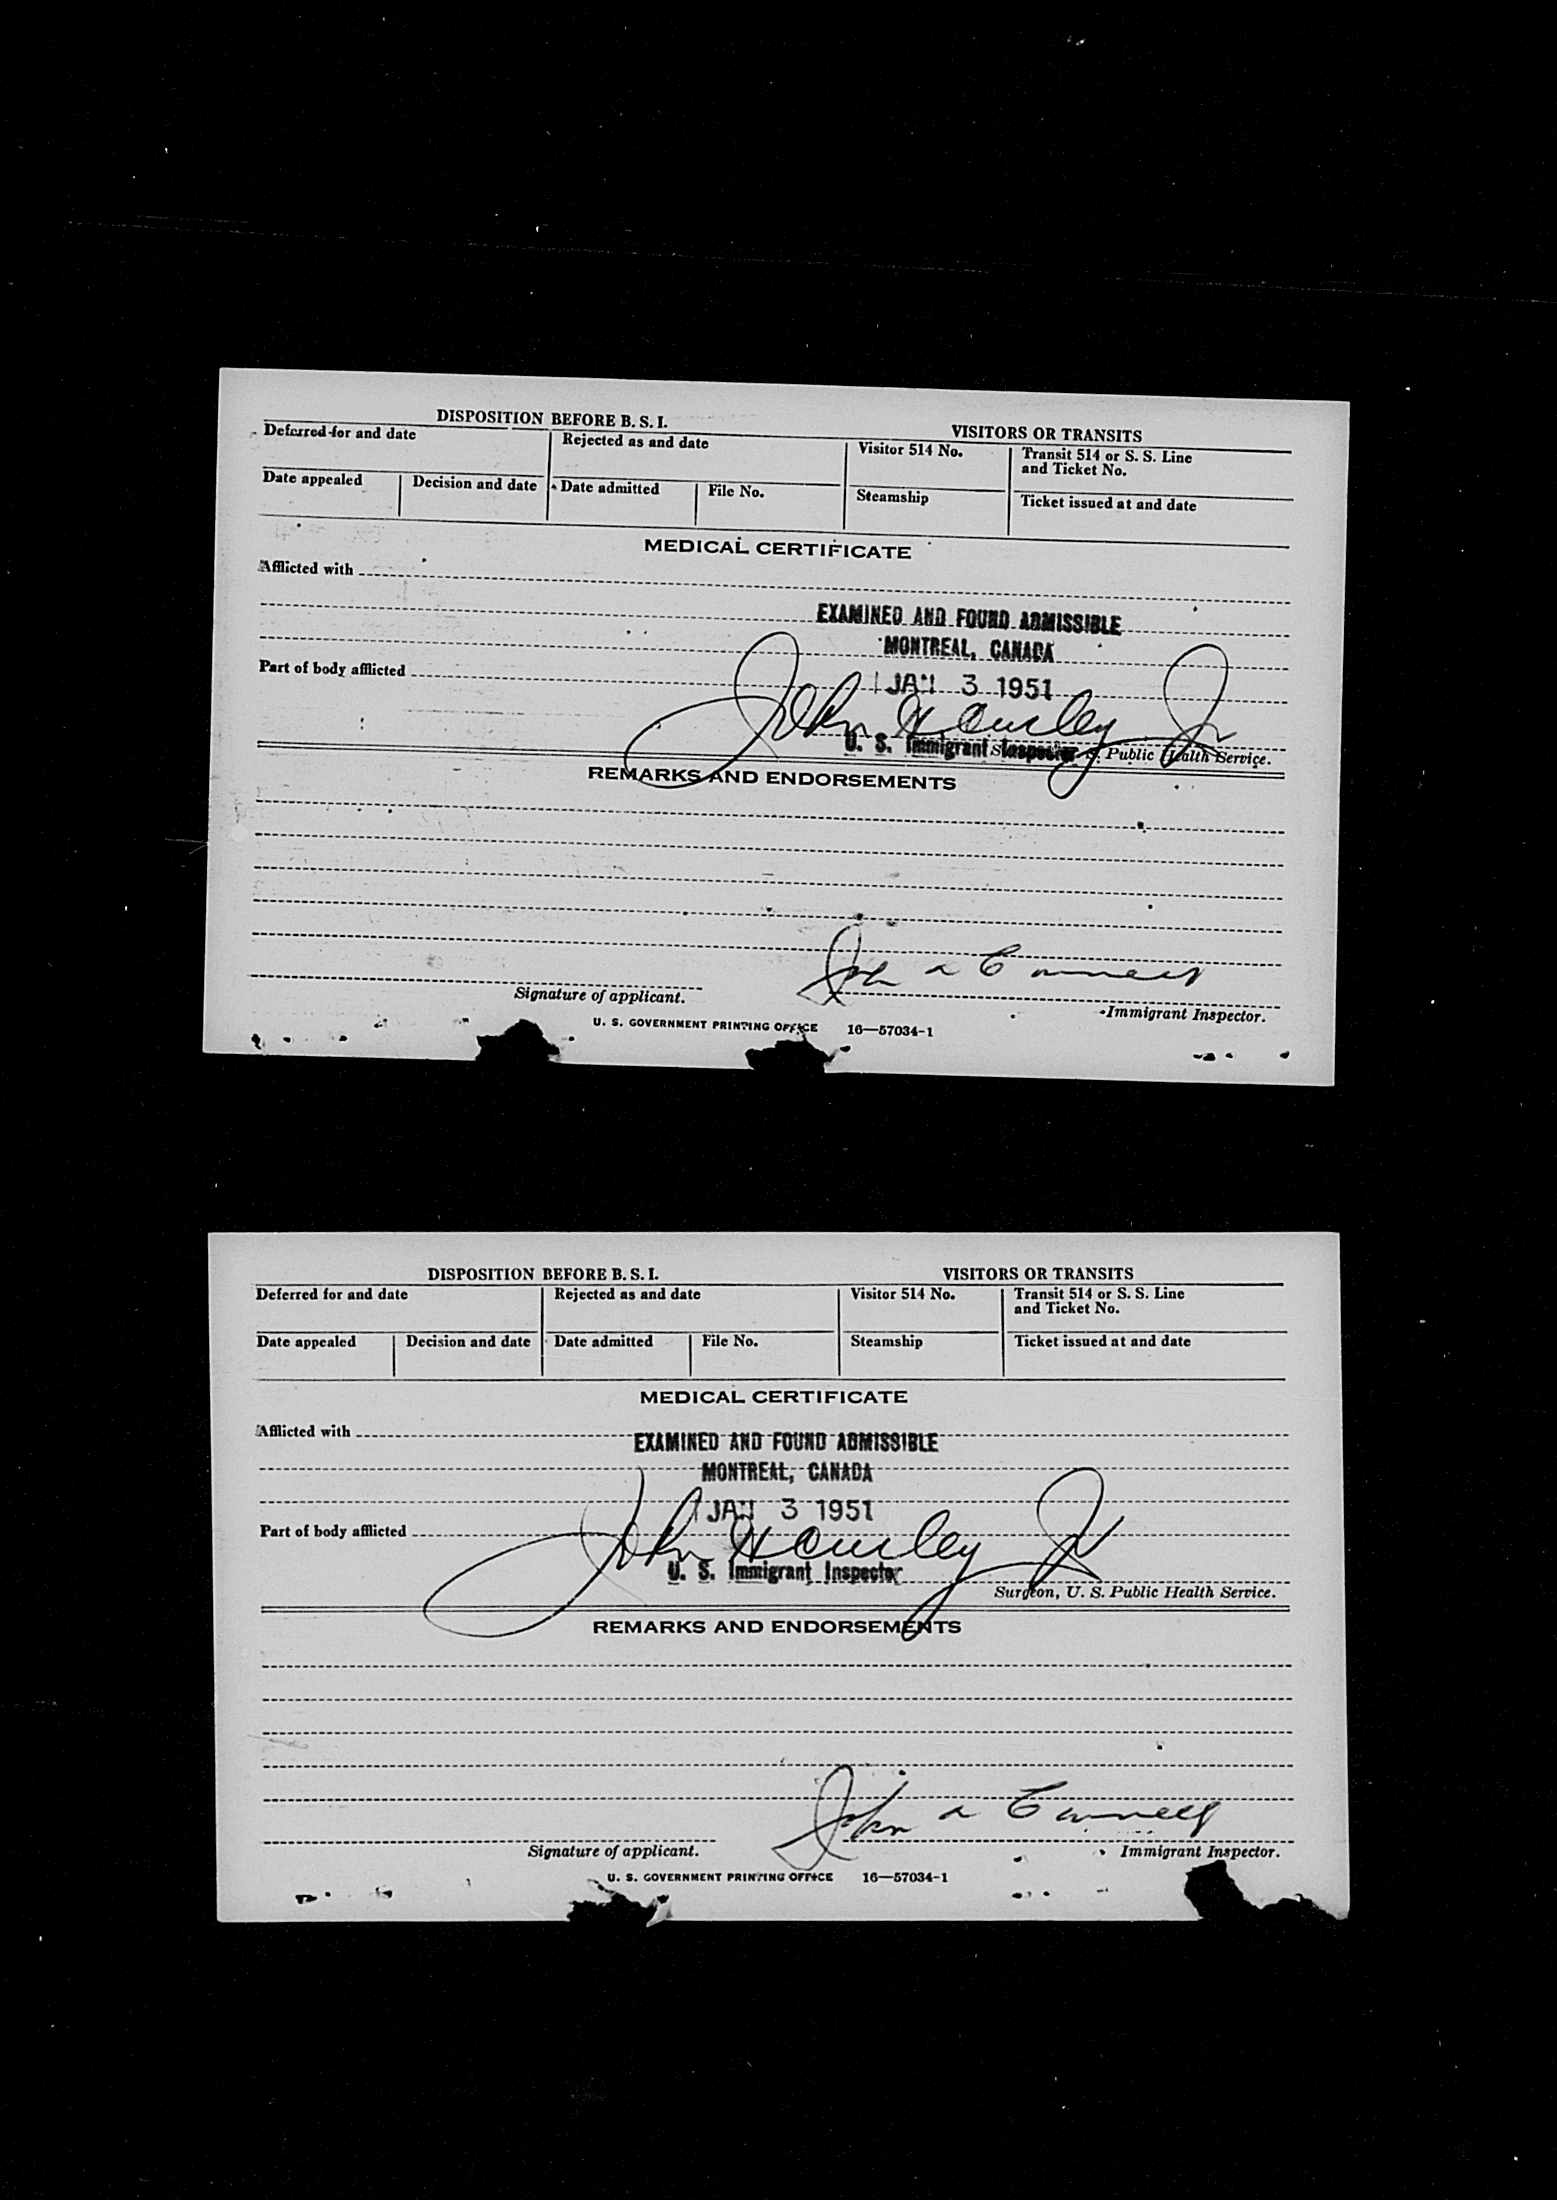 DISPOSITION BEFORE B. S. I.
VISITORS OR TRANSITS
Deferred for and date
Rejected as and date
Visitor 514 No.
Transit 514 or S. S. Line
and Ticket No.
Date appealed
Decision and date
Date admitted
File No.
Steamship
Ticket issued at and date
MEDICAL CERTIFICATE
Afflicted with
EXAMINED AND FOUND ADMISSIBLE
MONTREAL, CANADA
Part of body afflicted
JAN 3 1951
John H Jr
U. S. Immigrant Inspector
Public Health Service.
REMARKS AND ENDORSEMENTS
John a
Signature of applicant.
Immigrant Inspector.
U. S. GOVERNMENT PRINTING OFFICE 16—57034-1
DISPOSITION BEFORE B. S. I.
VISITORS OR TRANSITS
Deferred for and date
Rejected as and date
Visitor 514 No.
Transit 514 or S. S. Line
and Ticket No.
Date appealed
Decision and date
Date admitted
File No.
Steamship
Ticket issued at and date
MEDICAL CERTIFICATE
Afflicted with
EXAMINED AND FOUND ADMISSIBLE
MONTREAL, CANADA
JAN 3 1951
Part of body afflicted
John H Jr
U. S. Immigrant Inspector
Surgeon, U. S. Public Health Service.
REMARKS AND ENDORSEMENTS
John a
Signature of applicant.
Immigrant Inspector.
U. S. GOVERNMENT PRINTING OFFICE 16—57034-1